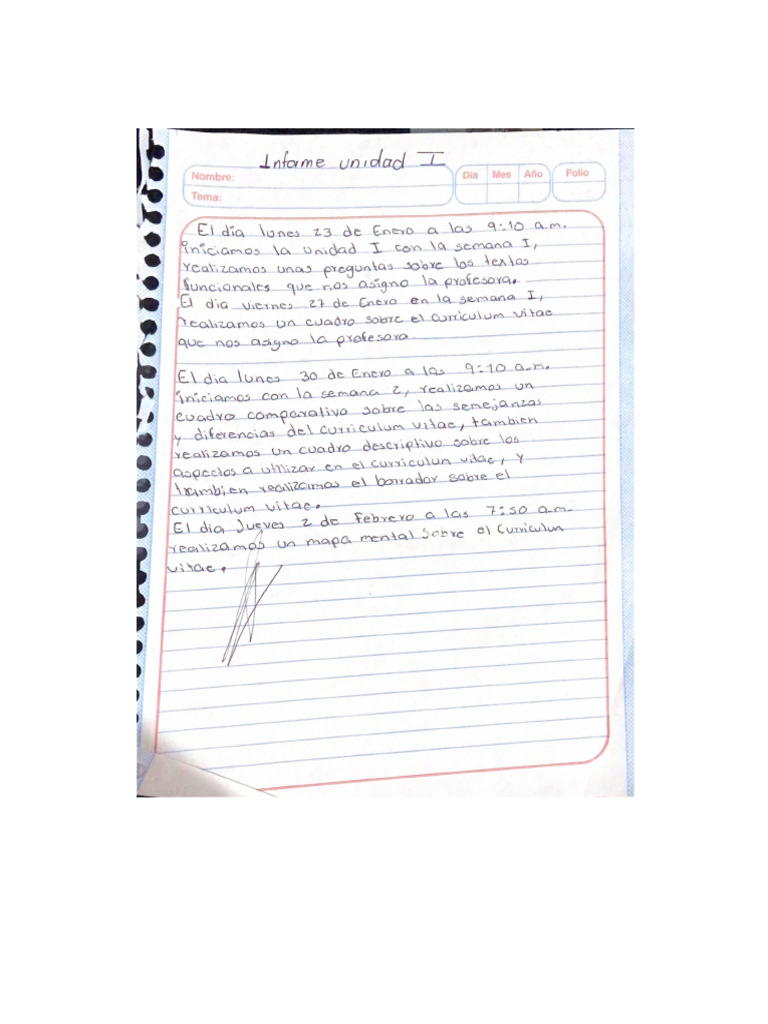 Informe unidad I
Nombre:
Tema:
Día Mes Año Folio
El dia lunes 23 de Enero a las 9:10 a.m.
iniciamos la unidad I con la semana I,
realizamos unas preguntas sobre los textos
funcionales que nos asigno la profesora.
El dia viernes 27 de Enero en la semana I,
realizamos un cuadro sobre el curriculum vitae
que nos asigno la profesora
El dia lunes 30 de Enero a las 9:10 a.m.
iniciamos con la semana 2, realizamos un
cuadro comparativo sobre las semejanzas
y diferencias del curriculum vitae, tambien
realizamos un cuadro descriptivo sobre los
aspectos a utilizar en el curriculun vitae, y
tambien realizamos el borrador sobre el
curriculum vitae.
El dia Jueves 2 de febrero a las 7:50 a.m.
realizamos un mapa mental sobre el curriculun
vitae.